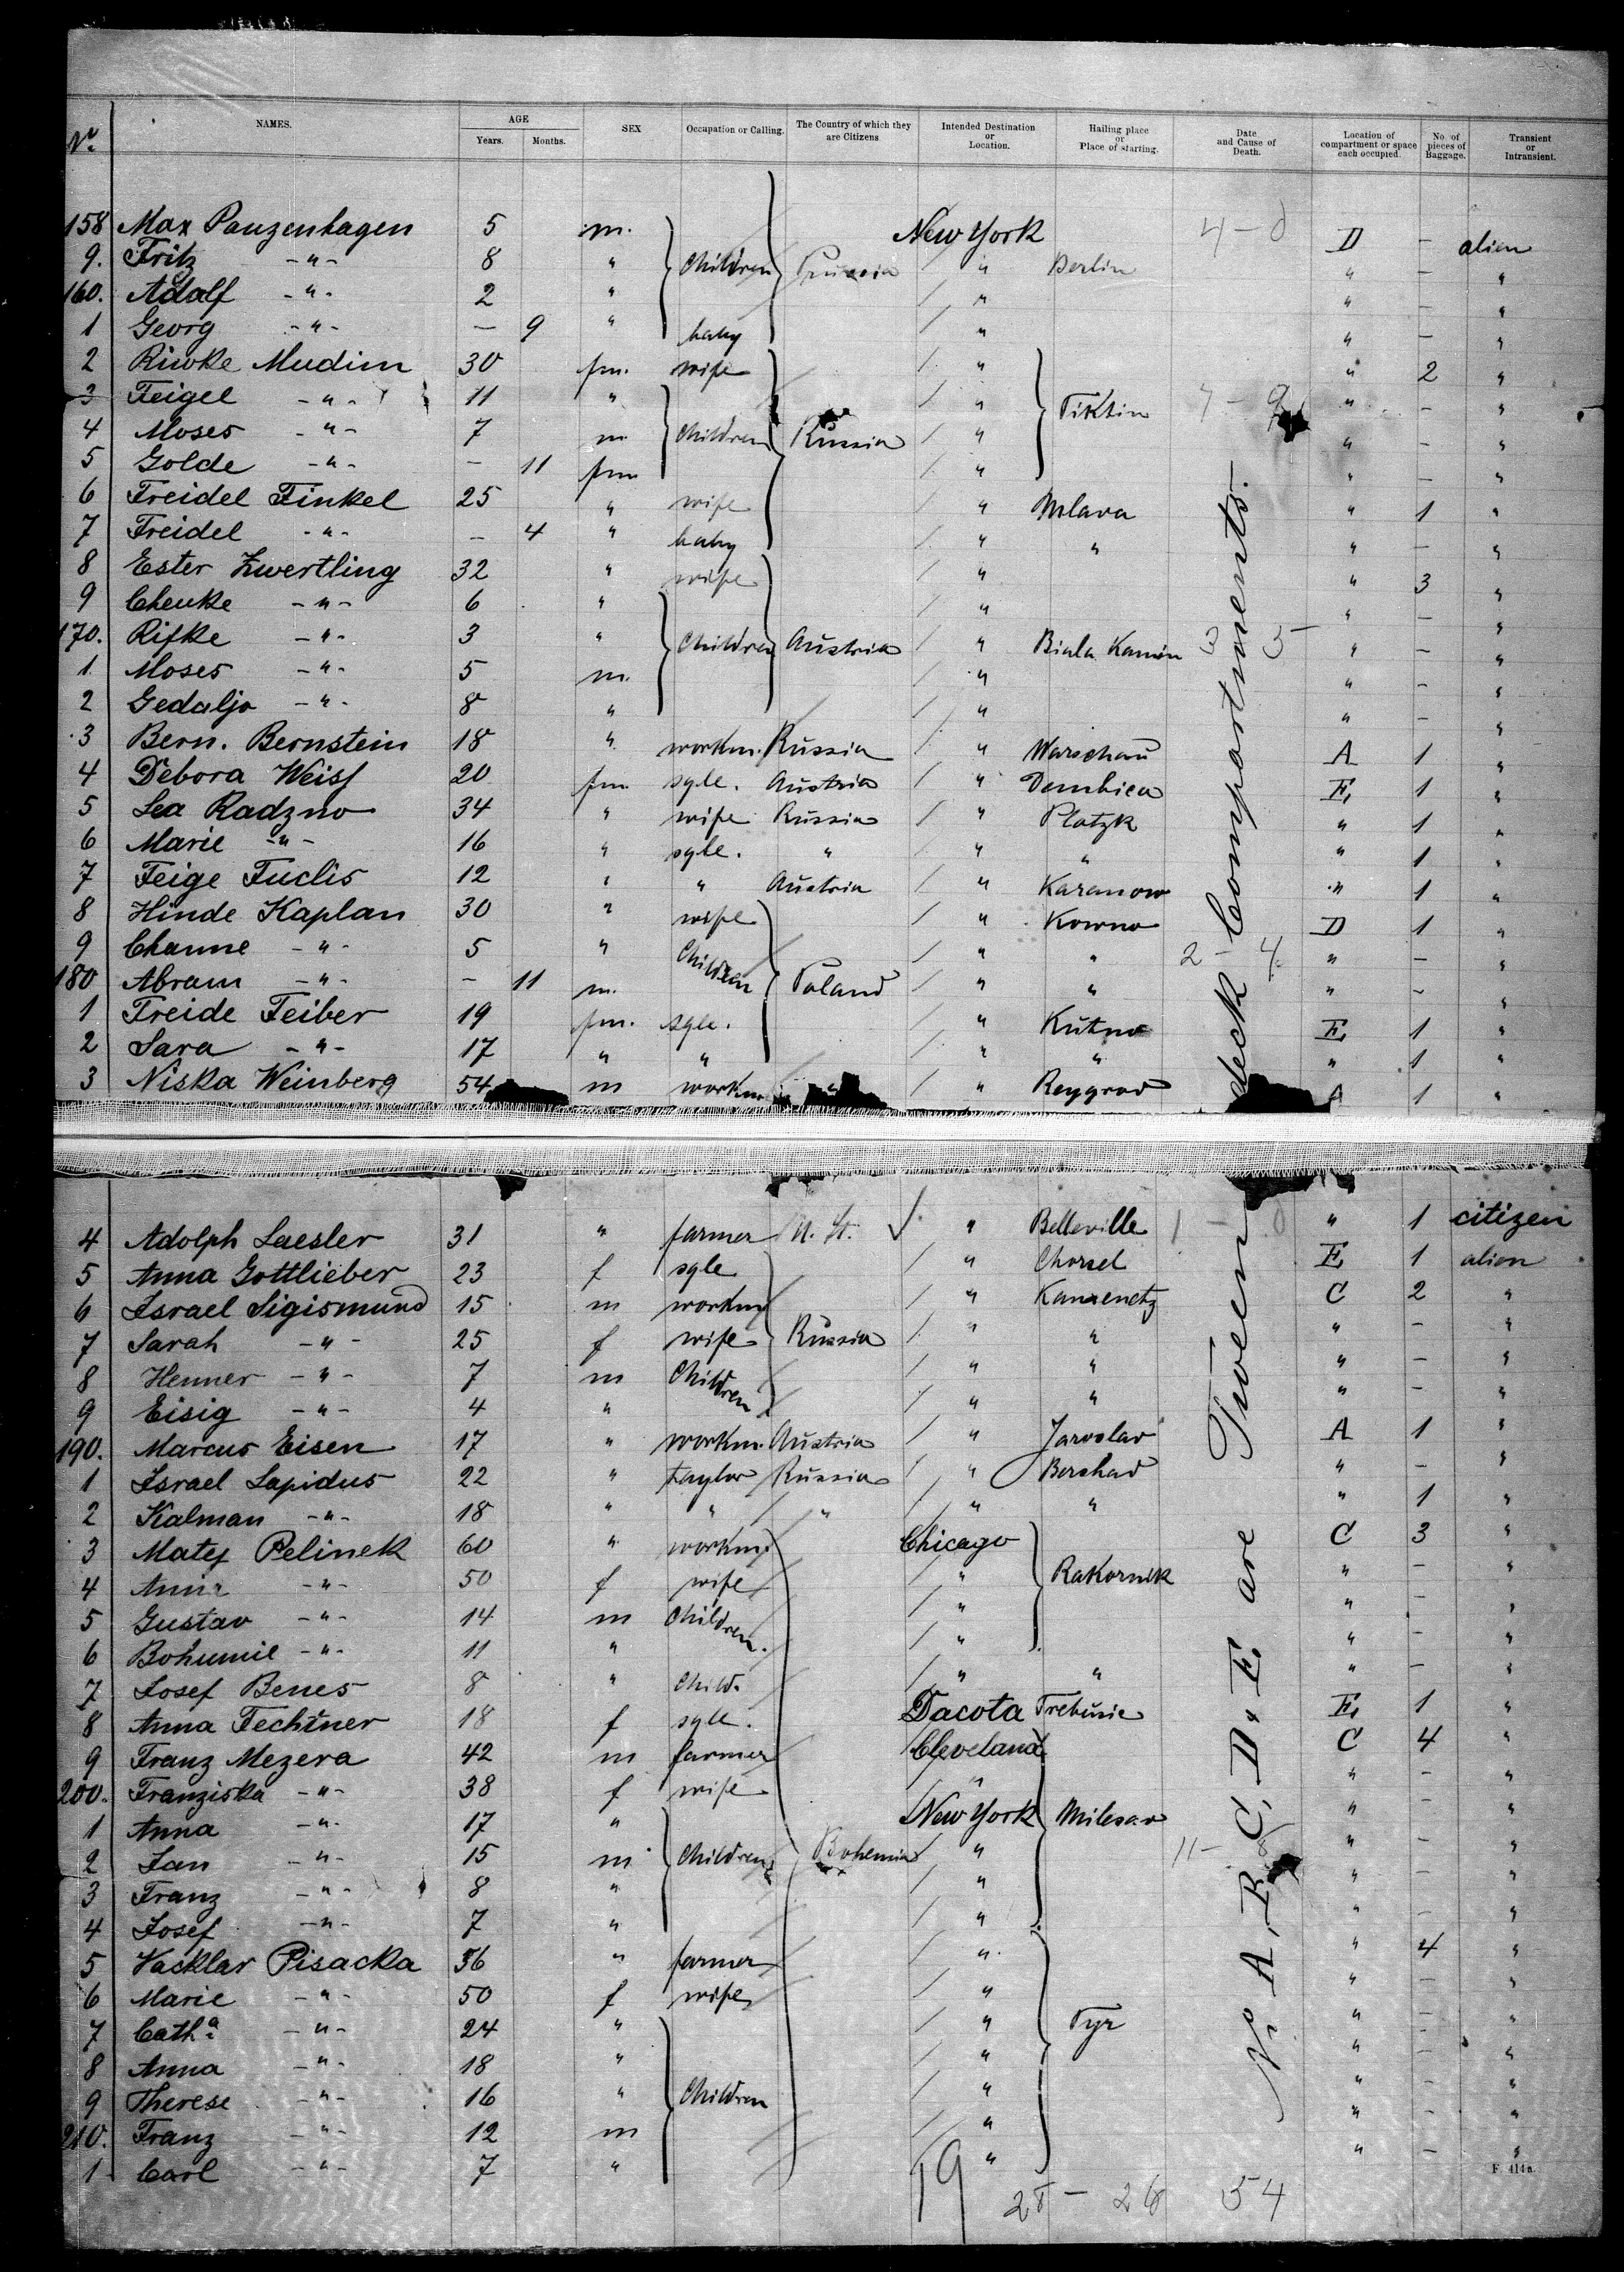 No. NAMES. AGE Years. Months. SEX Occupation or Calling. The Country of which they are Citizens Intended Destination or Location. Hailing place or Place of starting. Date and Cause of Death. Location of compartment or space each occupied. No. of pieces of Baggage. Transient or Intransient.
158 Max Panzenhagen 5 m. New York 4-0 D - alien
9. Fritz -"- 8 " Children Prussia / " Berlin " - "
160. Adalf -"- 2 " / " " - "
1 Georg -"- - 9 " baby / " " - "
2 Riwke Mudim 30 fm. wife / " " 2 "
3 Feigel -"- 11 " / " Tiktin " - "
4 Moses -"- 7 m. Children Russia / " " - "
5 Golde -"- - 11 fm / " " - "
6 Freidel Finkel 25 " wife " Mlava " 1 "
7 Freidel -"- - 4 " baby / " " " - "
8 Ester Zwertling 32 " wife / " " 3 "
9 Cheuke -"- 6 " / " " - "
170. Rifke -"- 3 " Children Austria / " Biala Kamin 3 5 " - "
1 Moses -"- 5 m. " " - "
2 Gedaljo -"- 8 " / " " - "
3 Bern. Bernstein 18 " workm. Russia / " Warschau A 1 "
4 Debora Weiss 20 fm. sgle. Austria / " Dembica E, 1 "
5 Lea Radzno 34 " wife Russia / " Plotzk " 1 "
6 Marie -"- 16 " sgle. " " " " 1 "
7 Feige Fuclis 12 " " Austria / " Karanow " 1 "
8 Hinde Kaplan 30 " wife / " Kowno D 1 "
9 Channe -"- 5 " Children / " " 2-4 " - "
180 Abram -"- - 11 m. Poland / " " " - "
1 Freide Feiber 19 fm. sgle. " Kutno E, 1 "
2 Sara -"- 17 " " " " " 1 "
3 Niska Weinberg 54 m workm " / " Reygrod A 1 "
4 Adolph Laesler 31 " farmer U. St. ✓ " Belleville 1 - 0 " 1 citizen
5 Anna Gottlieber 23 f sgle / " Chorzel E, 1 alien
6 Israel Sigismund 15 m workm / " Kamenetz C 2 "
7 Sarah -"- 25 f wife Russia / " " " - "
8 Henner -"- 7 m Children / " " " - "
9 Eisig -"- 4 " / " " " - "
190. Marcus Eisen 17 " workm. Austria / " Jaroslav A 1 "
1 Israel Lapidus 22 " taylor Russia / " Bershad " - "
2 Kalman -"- 18 " " " / " " " 1 "
3 Matej Pelinek 60 " workm. Chicago C 3 "
4 Anna -"- 50 f wife / " Rakornik " - "
5 Gustav -"- 14 m Children. / " " - "
6 Bohumil -"- 11 " / " " - "
7 Josef Benes 8 " Child. / " " " - "
8 Anna Fechtner 18 f sgle. Dacota Trebusie E, 1 "
9 Franz Mezera 42 m farmer Cleveland C 4 "
200. Franziska -"- 38 f wife / " " - "
1 Anna -"- 17 " New York Milesav " - "
2 Jan -"- 15 m Children Bohemia / " 11- " - "
3 Franz -"- 8 " / " " - "
4 Josef -"- 7 " / " " - "
5 Vacklav Pisacka 56 " farmer / " " 4 "
6 Marie -"- 50 f wife / " " - "
7 Catha -"- 24 " / " Tyr " - "
8 Anna -"- 18 " / " " - "
9 Therese -"- 16 " Children / " " - "
210. Franz -"- 12 m / " " - "
1 Carl -"- 7 " " " - "
No. A, B, C, D, E are Tween deck Compartments.
F. 414a.
19 28 - 26 54